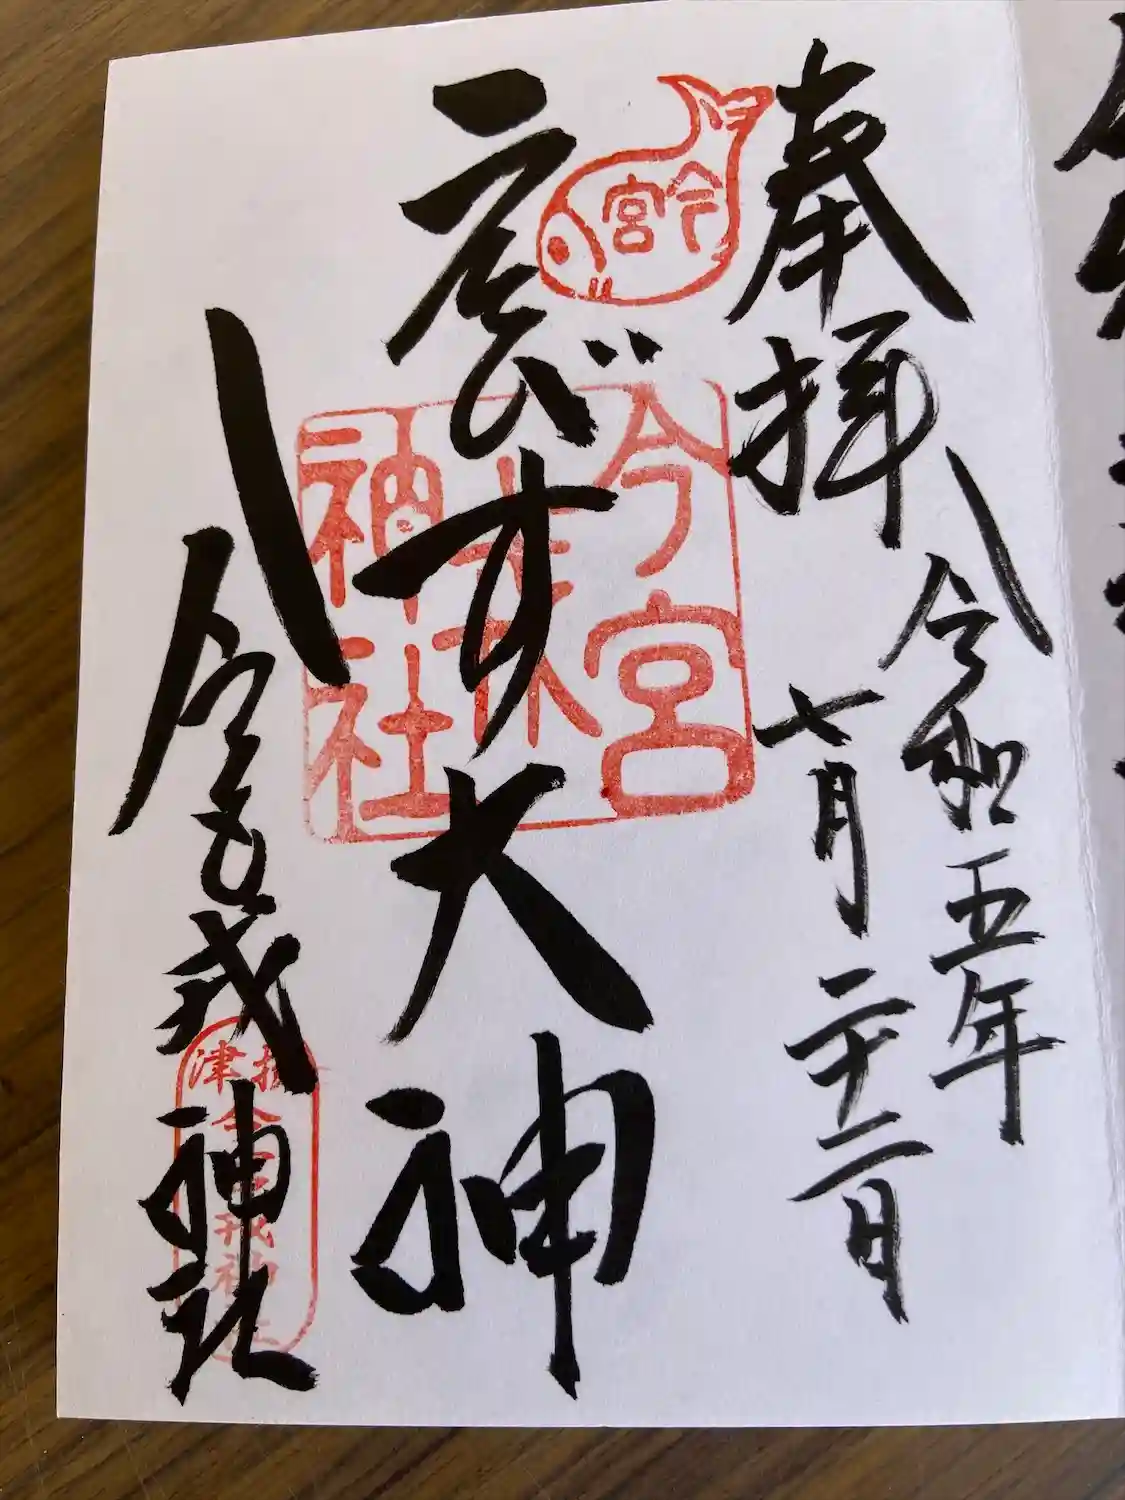 奉拝
令和五年
七月二十二日
今宮
ゑびす大神
今宮
神社
今宮戎神社
摂津
今宮戎神社